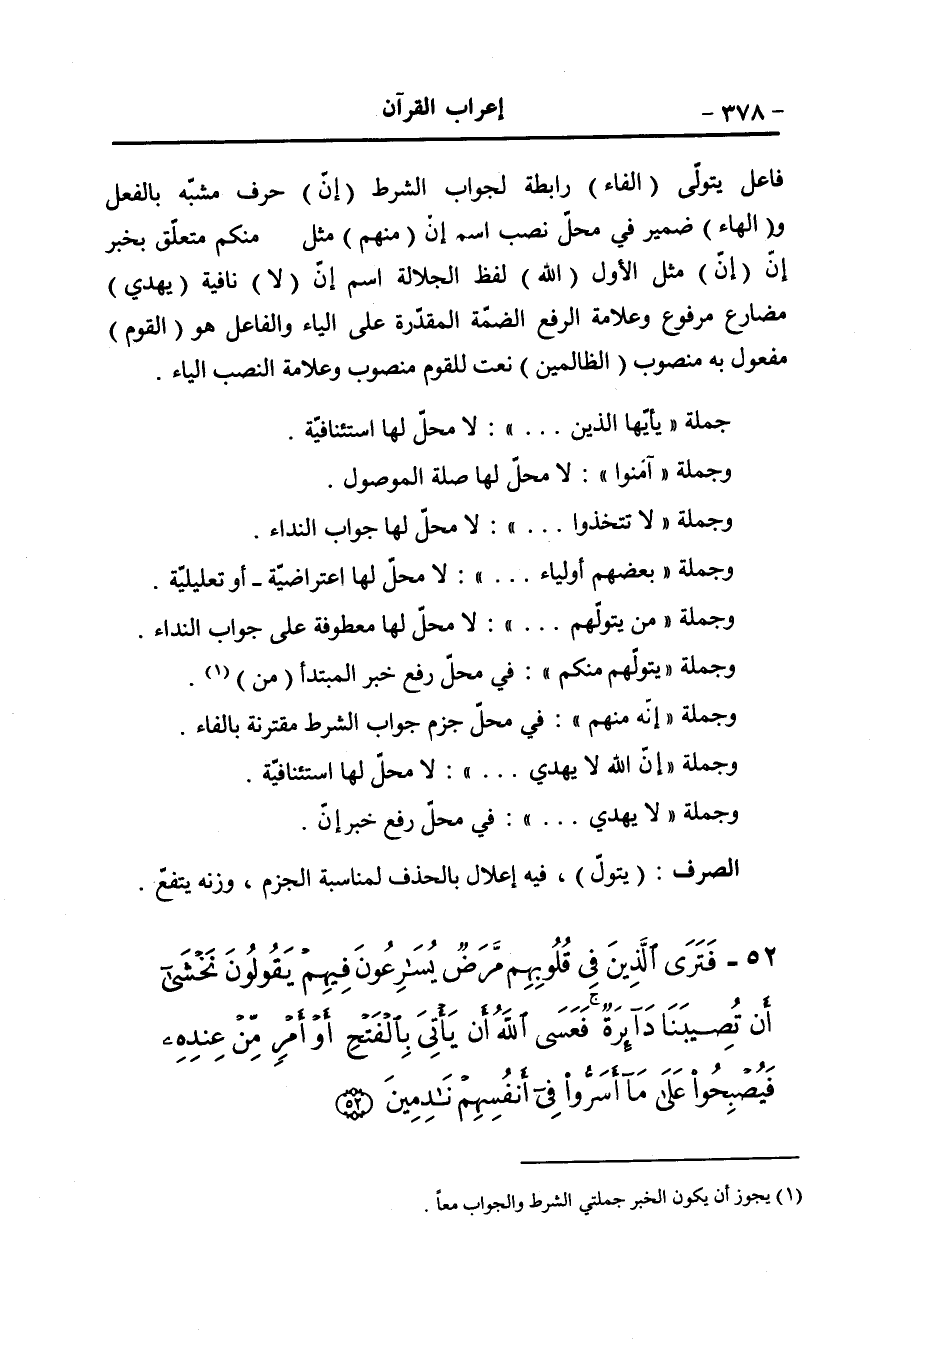 - ٣٧٨ - إعراب القرآن
فاعل يتولّى ( الفاء ) رابطة لجواب الشرط ( إنّ ) حرف مشبّه بالفعل
و( الهاء ) ضمير في محلّ نصب اسم إنّ ( منهم ) مثل منكم متعلّق بخبر
إنّ ( إنّ ) مثل الأول ( الله ) لفظ الجلالة اسم إنّ ( لا ) نافية ( يهدي )
مضارع مرفوع وعلامة الرفع الضمّة المقدّرة على الياء والفاعل هو ( القوم )
مفعول به منصوب ( الظالمين ) نعت للقوم منصوب وعلامة النصب الياء .
جملة « يأيّها الذين . . . » : لا محلّ لها استئنافيّة .
وجملة « آمنوا » : لا محلّ لها صلة الموصول .
وجملة « لا تتخذوا . . . » : لا محلّ لها جواب النداء .
وجملة « بعضهم أولياء . . . » : لا محلّ لها اعتراضيّة - أو تعليليّة .
وجملة « من يتولّهم . . . » : لا محلّ لها معطوفة على جواب النداء .
وجملة « يتولّهم منكم » : في محلّ رفع خبر المبتدأ ( من ) (١) .
وجملة « إنّه منهم » : في محلّ جزم جواب الشرط مقترنة بالفاء .
وجملة « إنّ الله لا يهدي . . . » : لا محلّ لها استئنافيّة .
وجملة « لا يهدي . . . » : في محلّ رفع خبر إنّ .
الصرف : ( يتولّ ) ، فيه إعلال بالحذف لمناسبة الجزم ، وزنه يتفعّ .
٥٢ - فَتَرَى ٱلَّذِينَ فِي قُلُوبِهِم مَّرَضٌ يُسَٰرِعُونَ فِيهِمْ يَقُولُونَ نَخْشَىٰٓ
أَن تُصِيبَنَا دَآئِرَةٌ ۚ فَعَسَى ٱللَّهُ أَن يَأْتِيَ بِٱلْفَتْحِ أَوْ أَمْرٍ مِّنْ عِندِهِۦ
فَيُصْبِحُوا۟ عَلَىٰ مَآ أَسَرُّوا۟ فِىٓ أَنفُسِهِمْ نَٰدِمِينَ ﴿٥٢﴾
(١) يجوز أن يكون الخبر جملتي الشرط والجواب معاً .